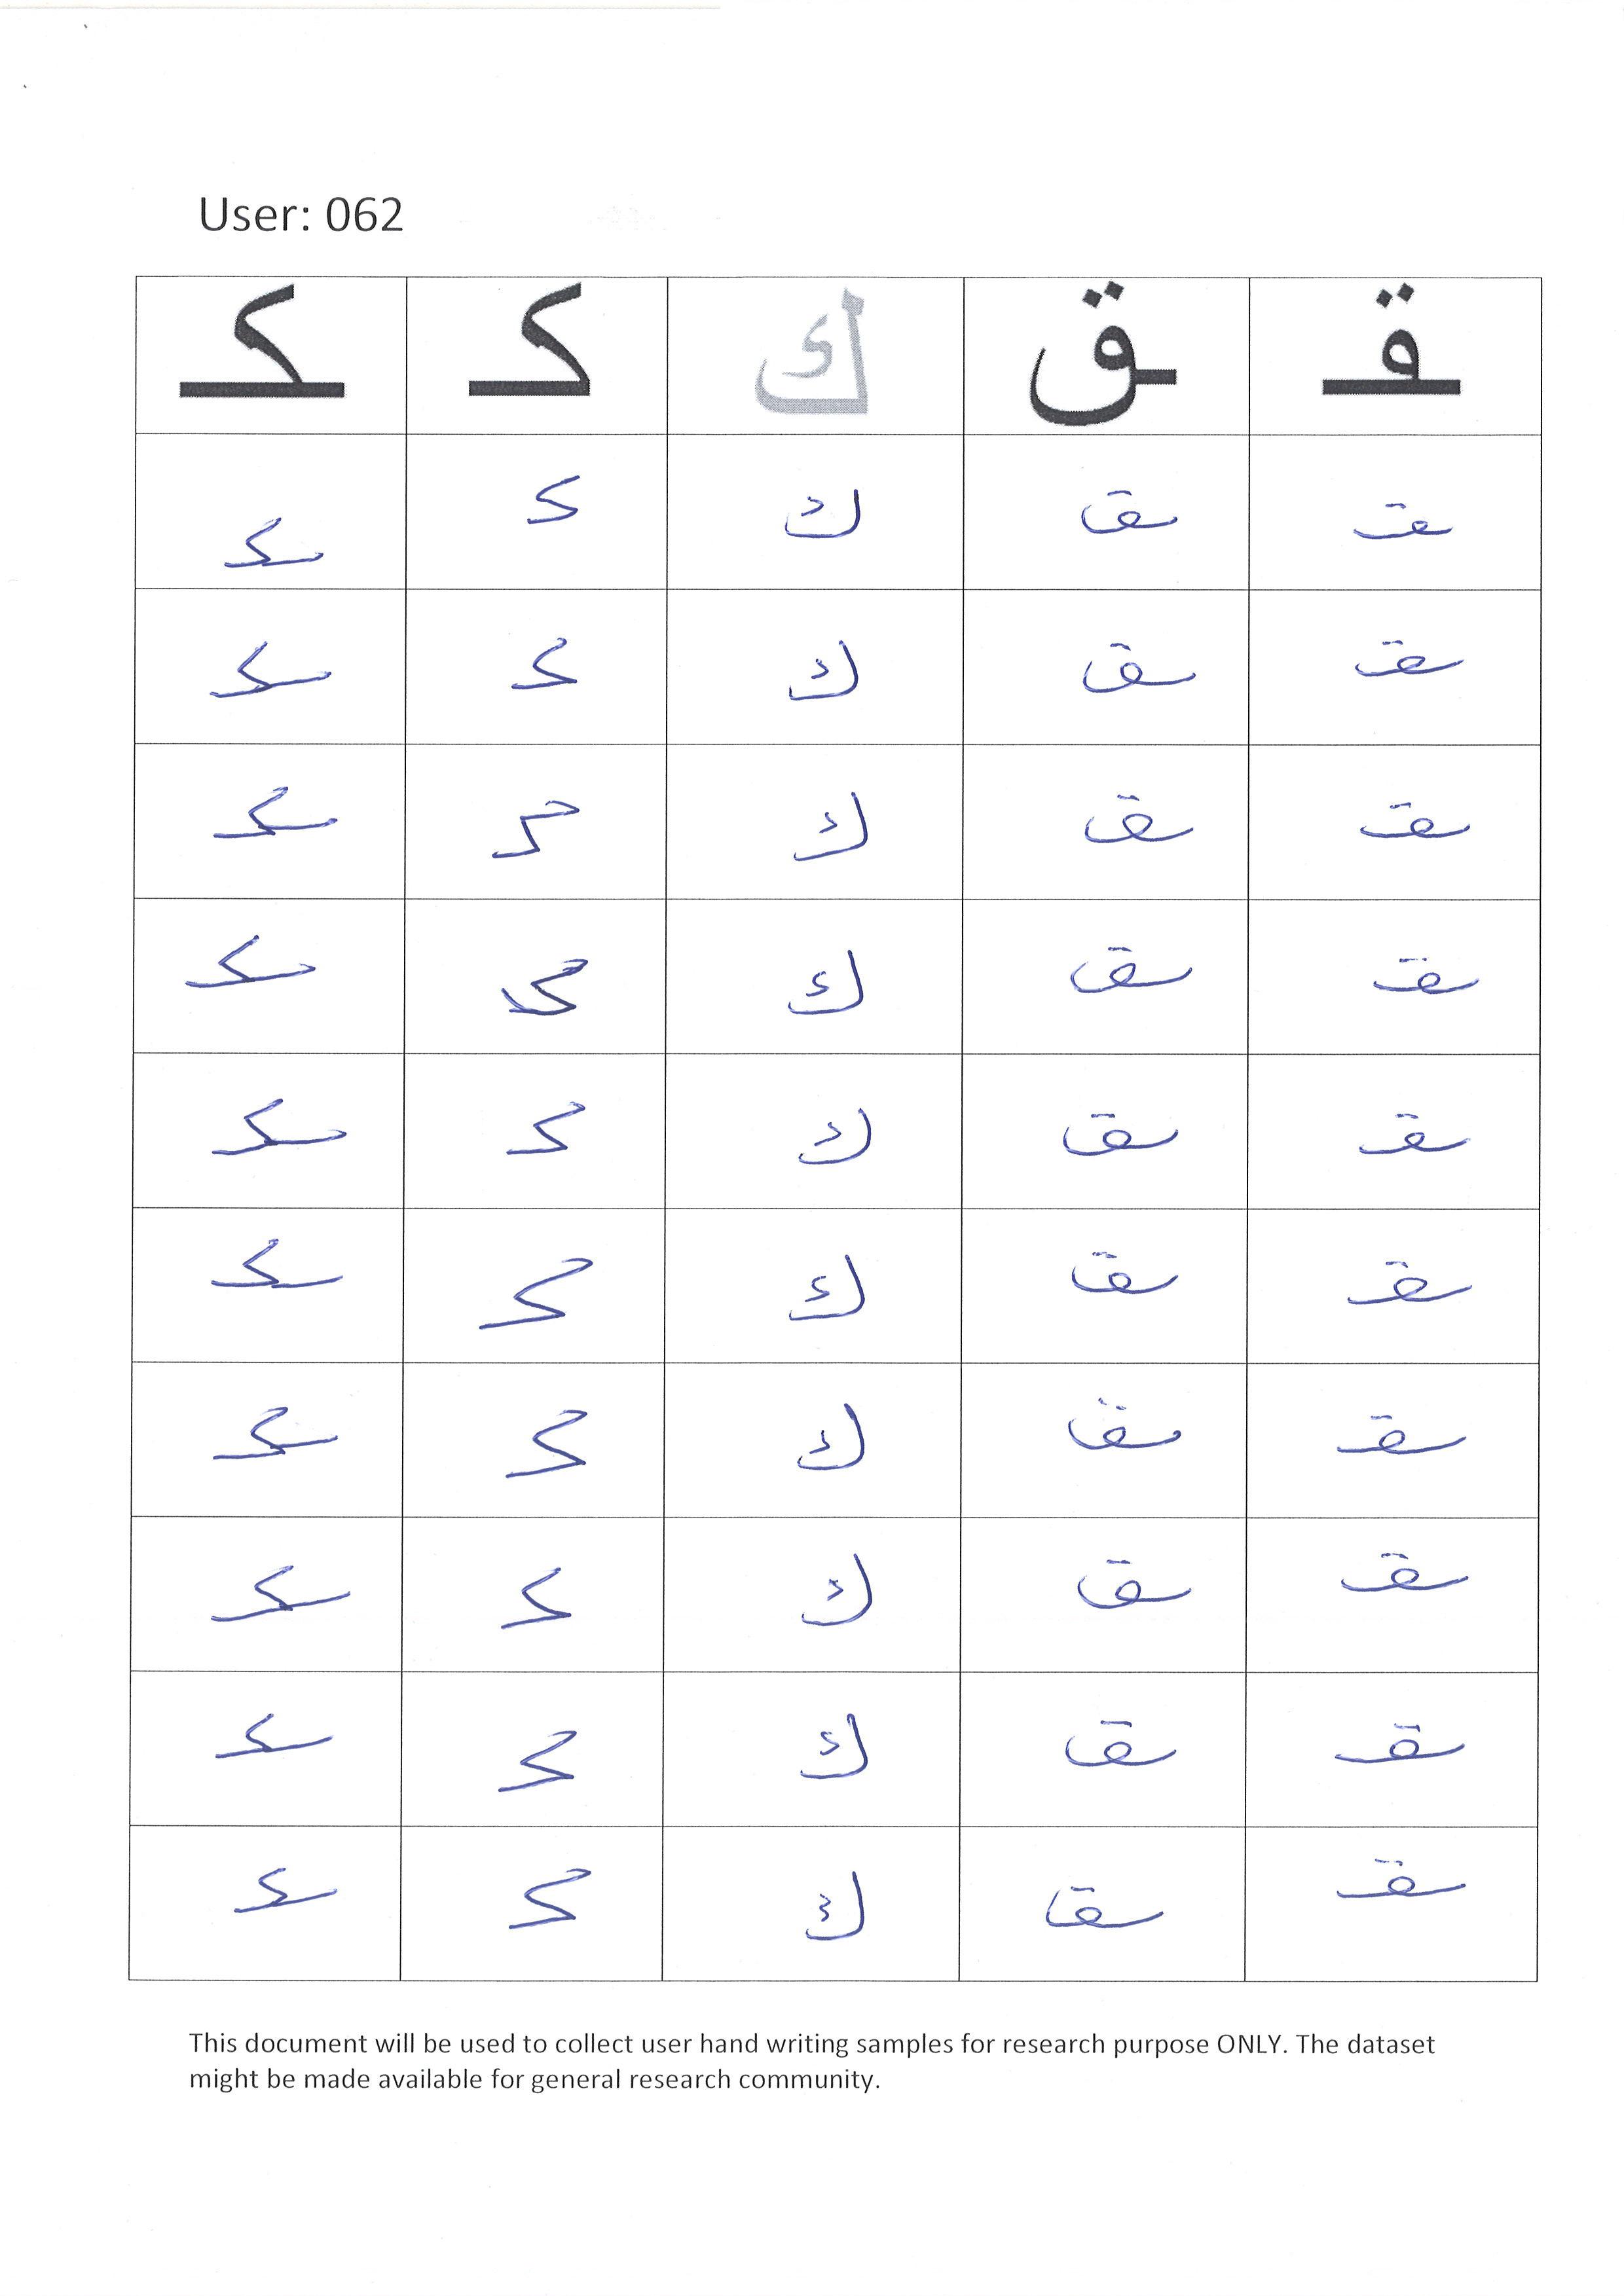 User: 062
ـقـ ـق ك كـ ـكـ
ـقـ ـق ك كـ ـكـ
ـقـ ـق ك كـ ـكـ
ـقـ ـق ك كـ ـكـ
ـقـ ـق ك كـ ـكـ
ـقـ ـق ك كـ ـكـ
ـقـ ـق ك كـ ـكـ
ـقـ ـق ك كـ ـكـ
ـقـ ـق ك كـ ـكـ
ـقـ ـق ك كـ ـكـ
ـقـ ـق ك كـ ـكـ
This document will be used to collect user hand writing samples for research purpose ONLY. The dataset
might be made available for general research community.